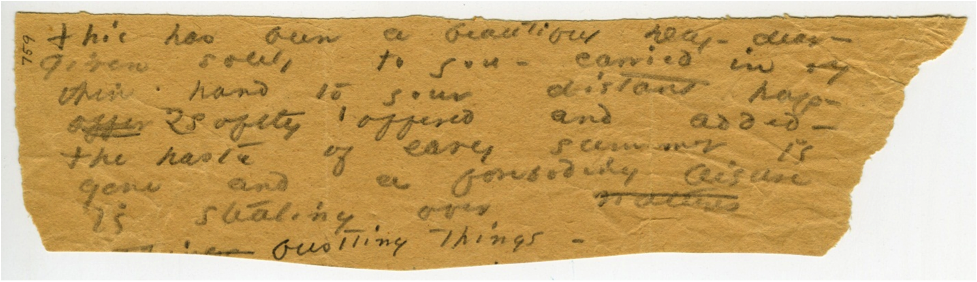 759
This has been a beautiful day - dear -
given solely to you - carried in my
thin hand to your distant hope
offer & softly offered and added -
The haste of early summer is
gone and a foreboding leisure
is stealing over natures
bustling Things -